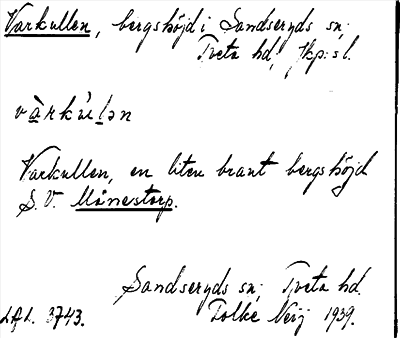 Varkullen, bergshöjd i Sandseryds sn;
Tveta hd; Jkp:s l.
vàrkúlən
Varkullen, en liten brant bergshöjd
S.V. Månestorp.
Sandseryds sn; Tveta hd.
L.A.L. 3743. Folke Neij 1939.